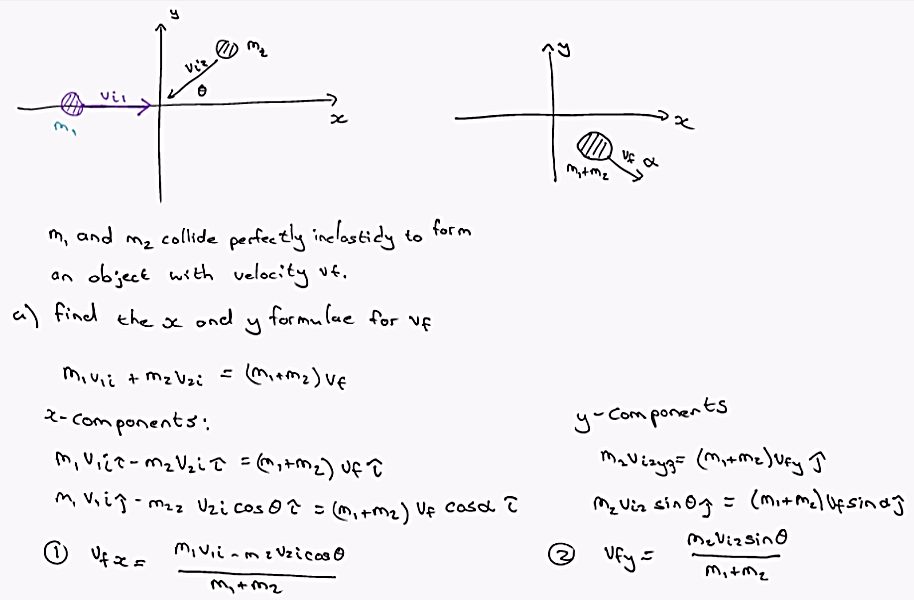 y
m₂
vi2
θ
vi1
x
m₁
y
x
vf α
m₁+m₂
m₁ and m₂ collide perfectly inelasticly to form
an object with velocity vf.
a) find the x and y formulae for vf
m₁v₁i + m₂v₂i = (m₁+m₂)vf
x-components:
m₁v₁i î - m₂v₂i î = (m₁+m₂) vf î
m₁ v₁i ĵ - m₂₂ v₂i cosθ î = (m₁+m₂) vf cosα î
① vfx = (m₁v₁i - m₂v₂i cosθ) / (m₁+m₂)
y-components
m₂vi2yĵ = (m₁+m₂)vfy ĵ
m₂vi2 sinθ ĵ = (m₁+m₂)vf sinα ĵ
② vfy = (m₂vi2 sinθ) / (m₁+m₂)